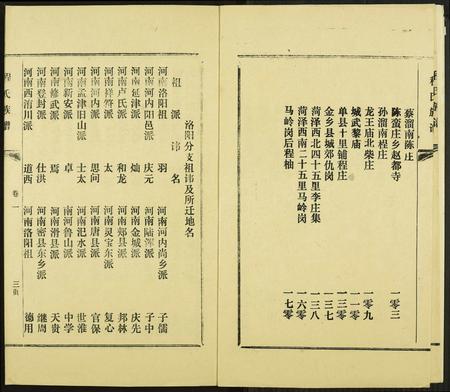 程氏族谱
蔡溜南陈庄
陈蛮庄乡赵都寺 一〇三
孙溜南程庄
龙王庙北柴庄 一〇九
城武黎庙 一一〇
单县十里铺程庄 一三〇
金乡县城郊仇岗 一三七
菏泽西北四十五里李庄集 一三八
菏泽西南二十五里马岭岗 一六〇
马岭岗后程柚 一七〇
洛阳分支祖讳及所迁地名
祖派 讳名
河南洛阳祖 羽 河南河内尚乡派 子儒
河南河内阳邑派 庆元 河南陆浑派 子中
河南延津派 灿 河南金城派 庆先
河南卢氏派 和龙 河南郏县派 邦林
河南祥符派 太 河南灵宝东派 复心
河南河内派 思问 河南唐县派 官保
河南孟津旧山派 士太 河南汜水派 世淮
河南新安派 卓 河南鲁山派 中学
河南修武派 焉 河南滑县派 天贵
河南登封派 仕洪 河南密县东乡派 继周
河南西淯川派 道西 河南洛阳祖 德用
程氏族谱
卷一
三页